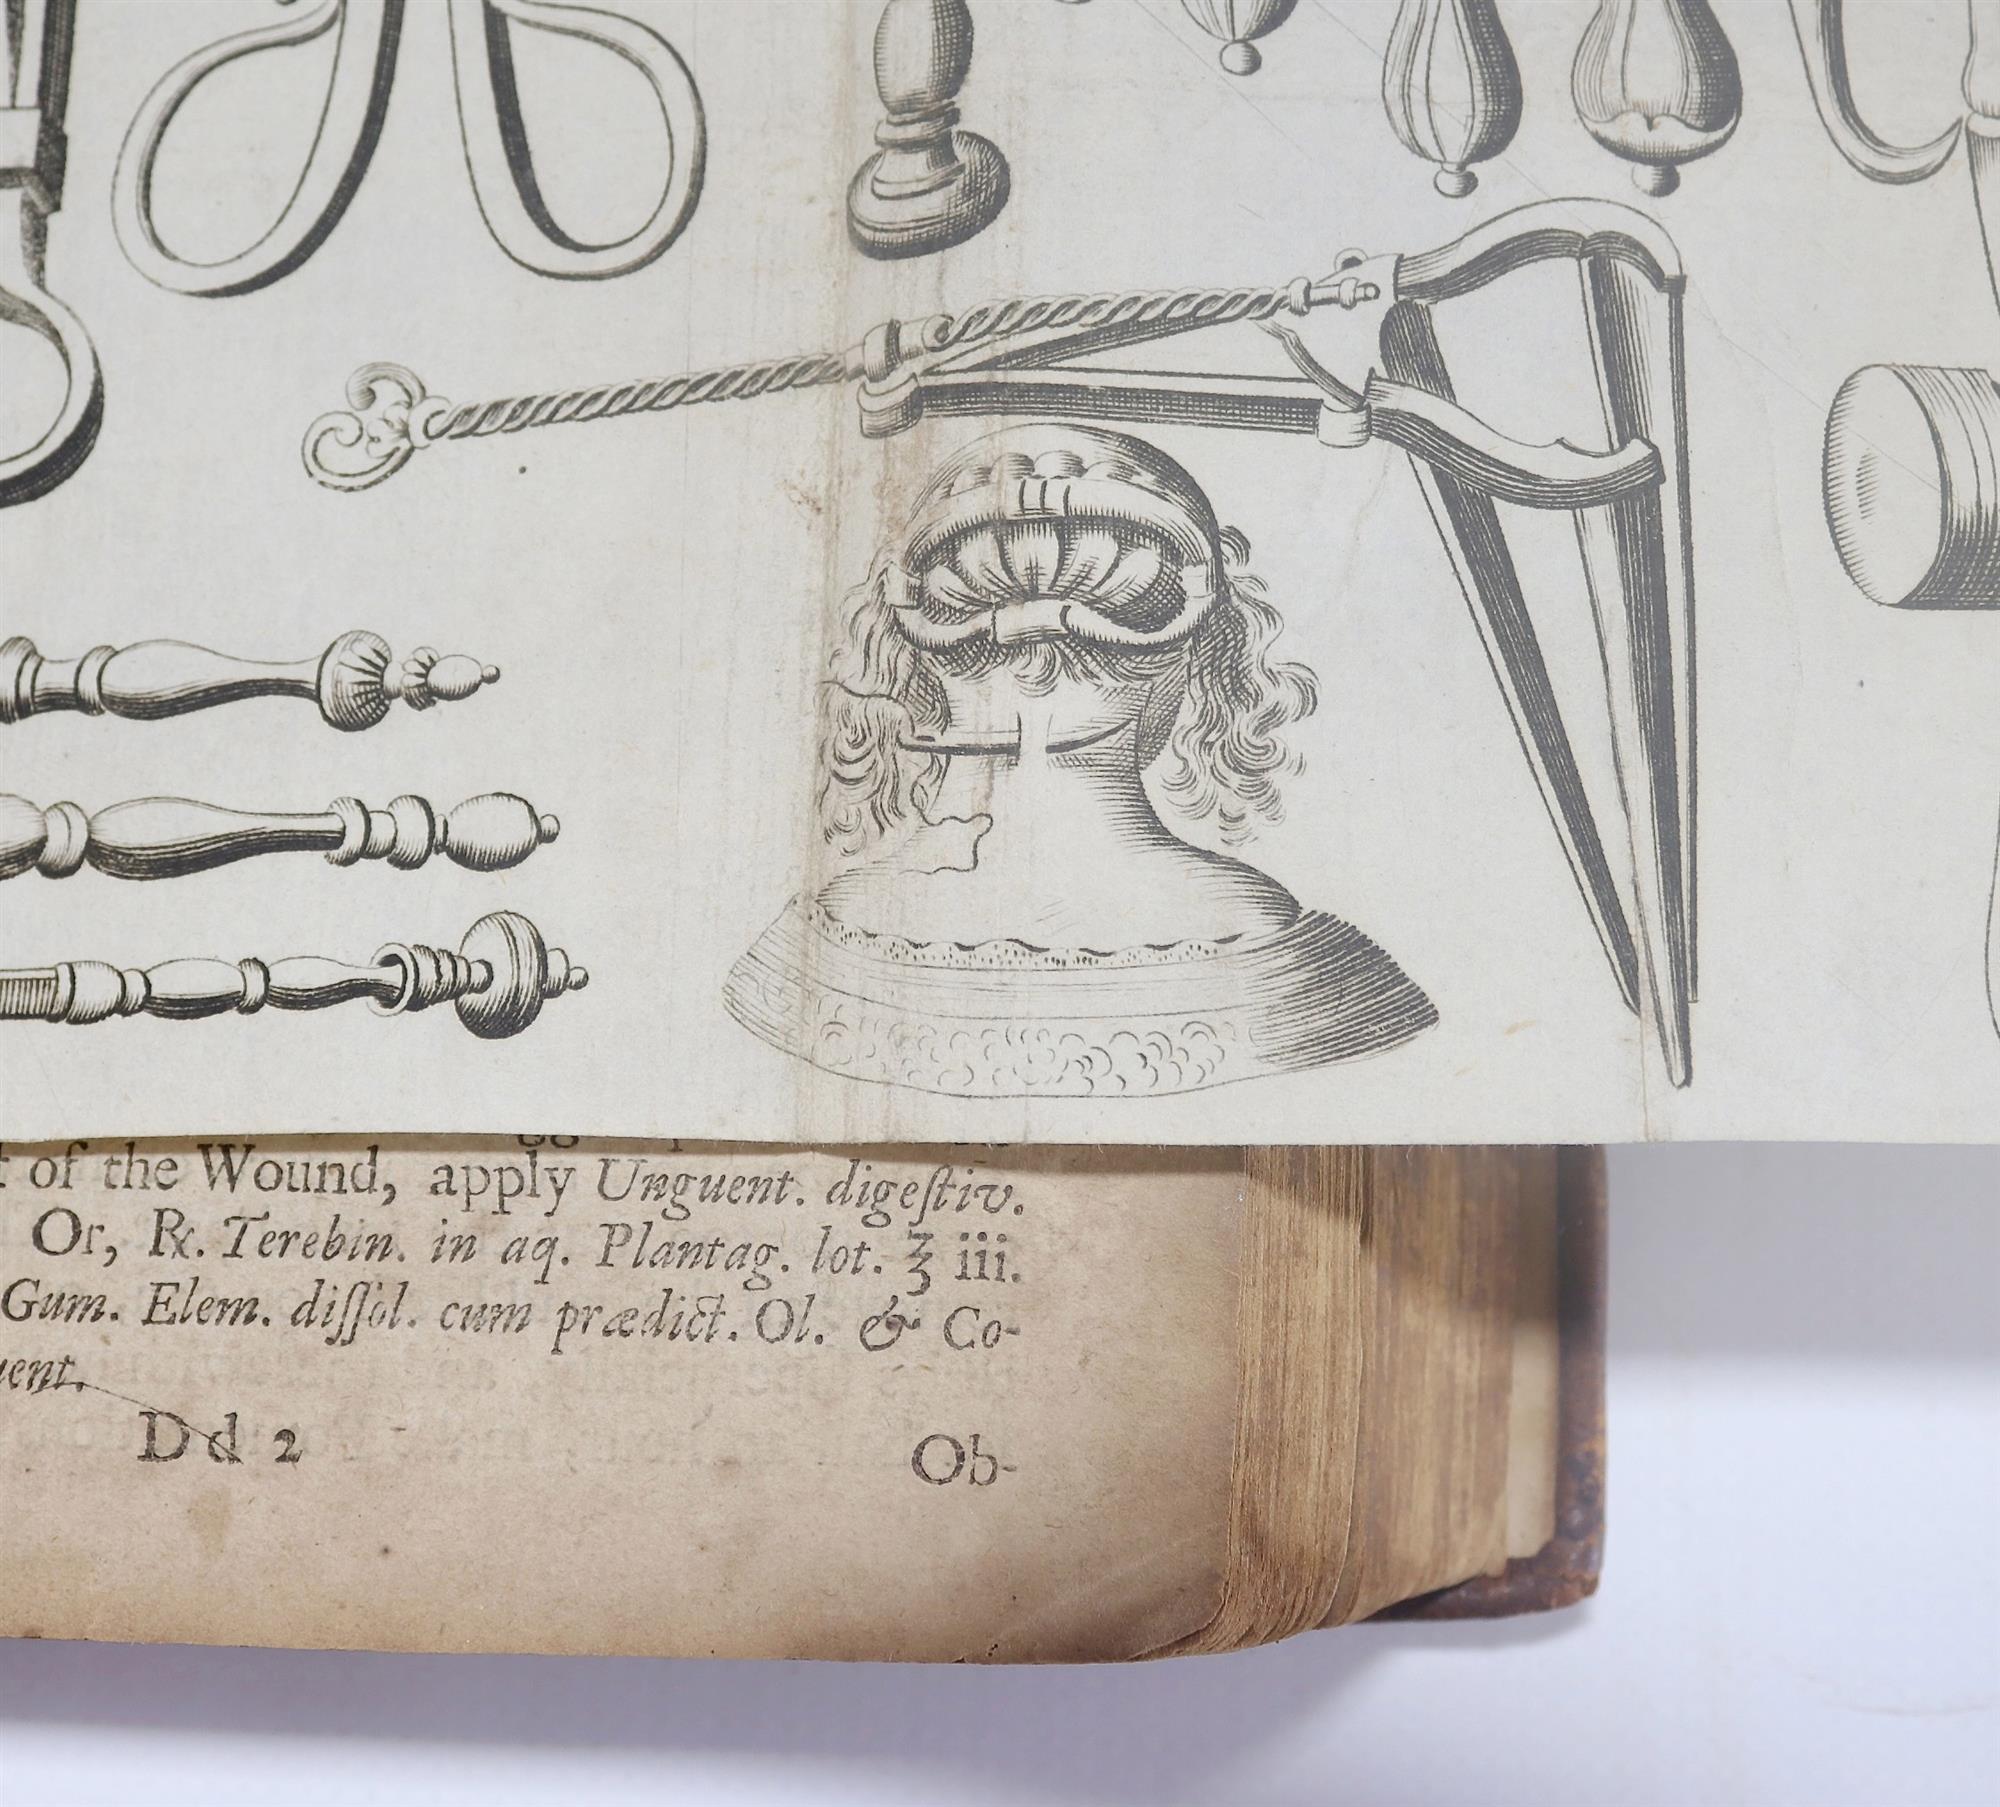 of the Wound, apply Unguent. digeſtiv.
Or, ℞. Terebin. in aq. Plantag. lot. ℥ iii.
Gum. Elem. diſſol. cum prædict. Ol. & Co-
D d 2
Ob-